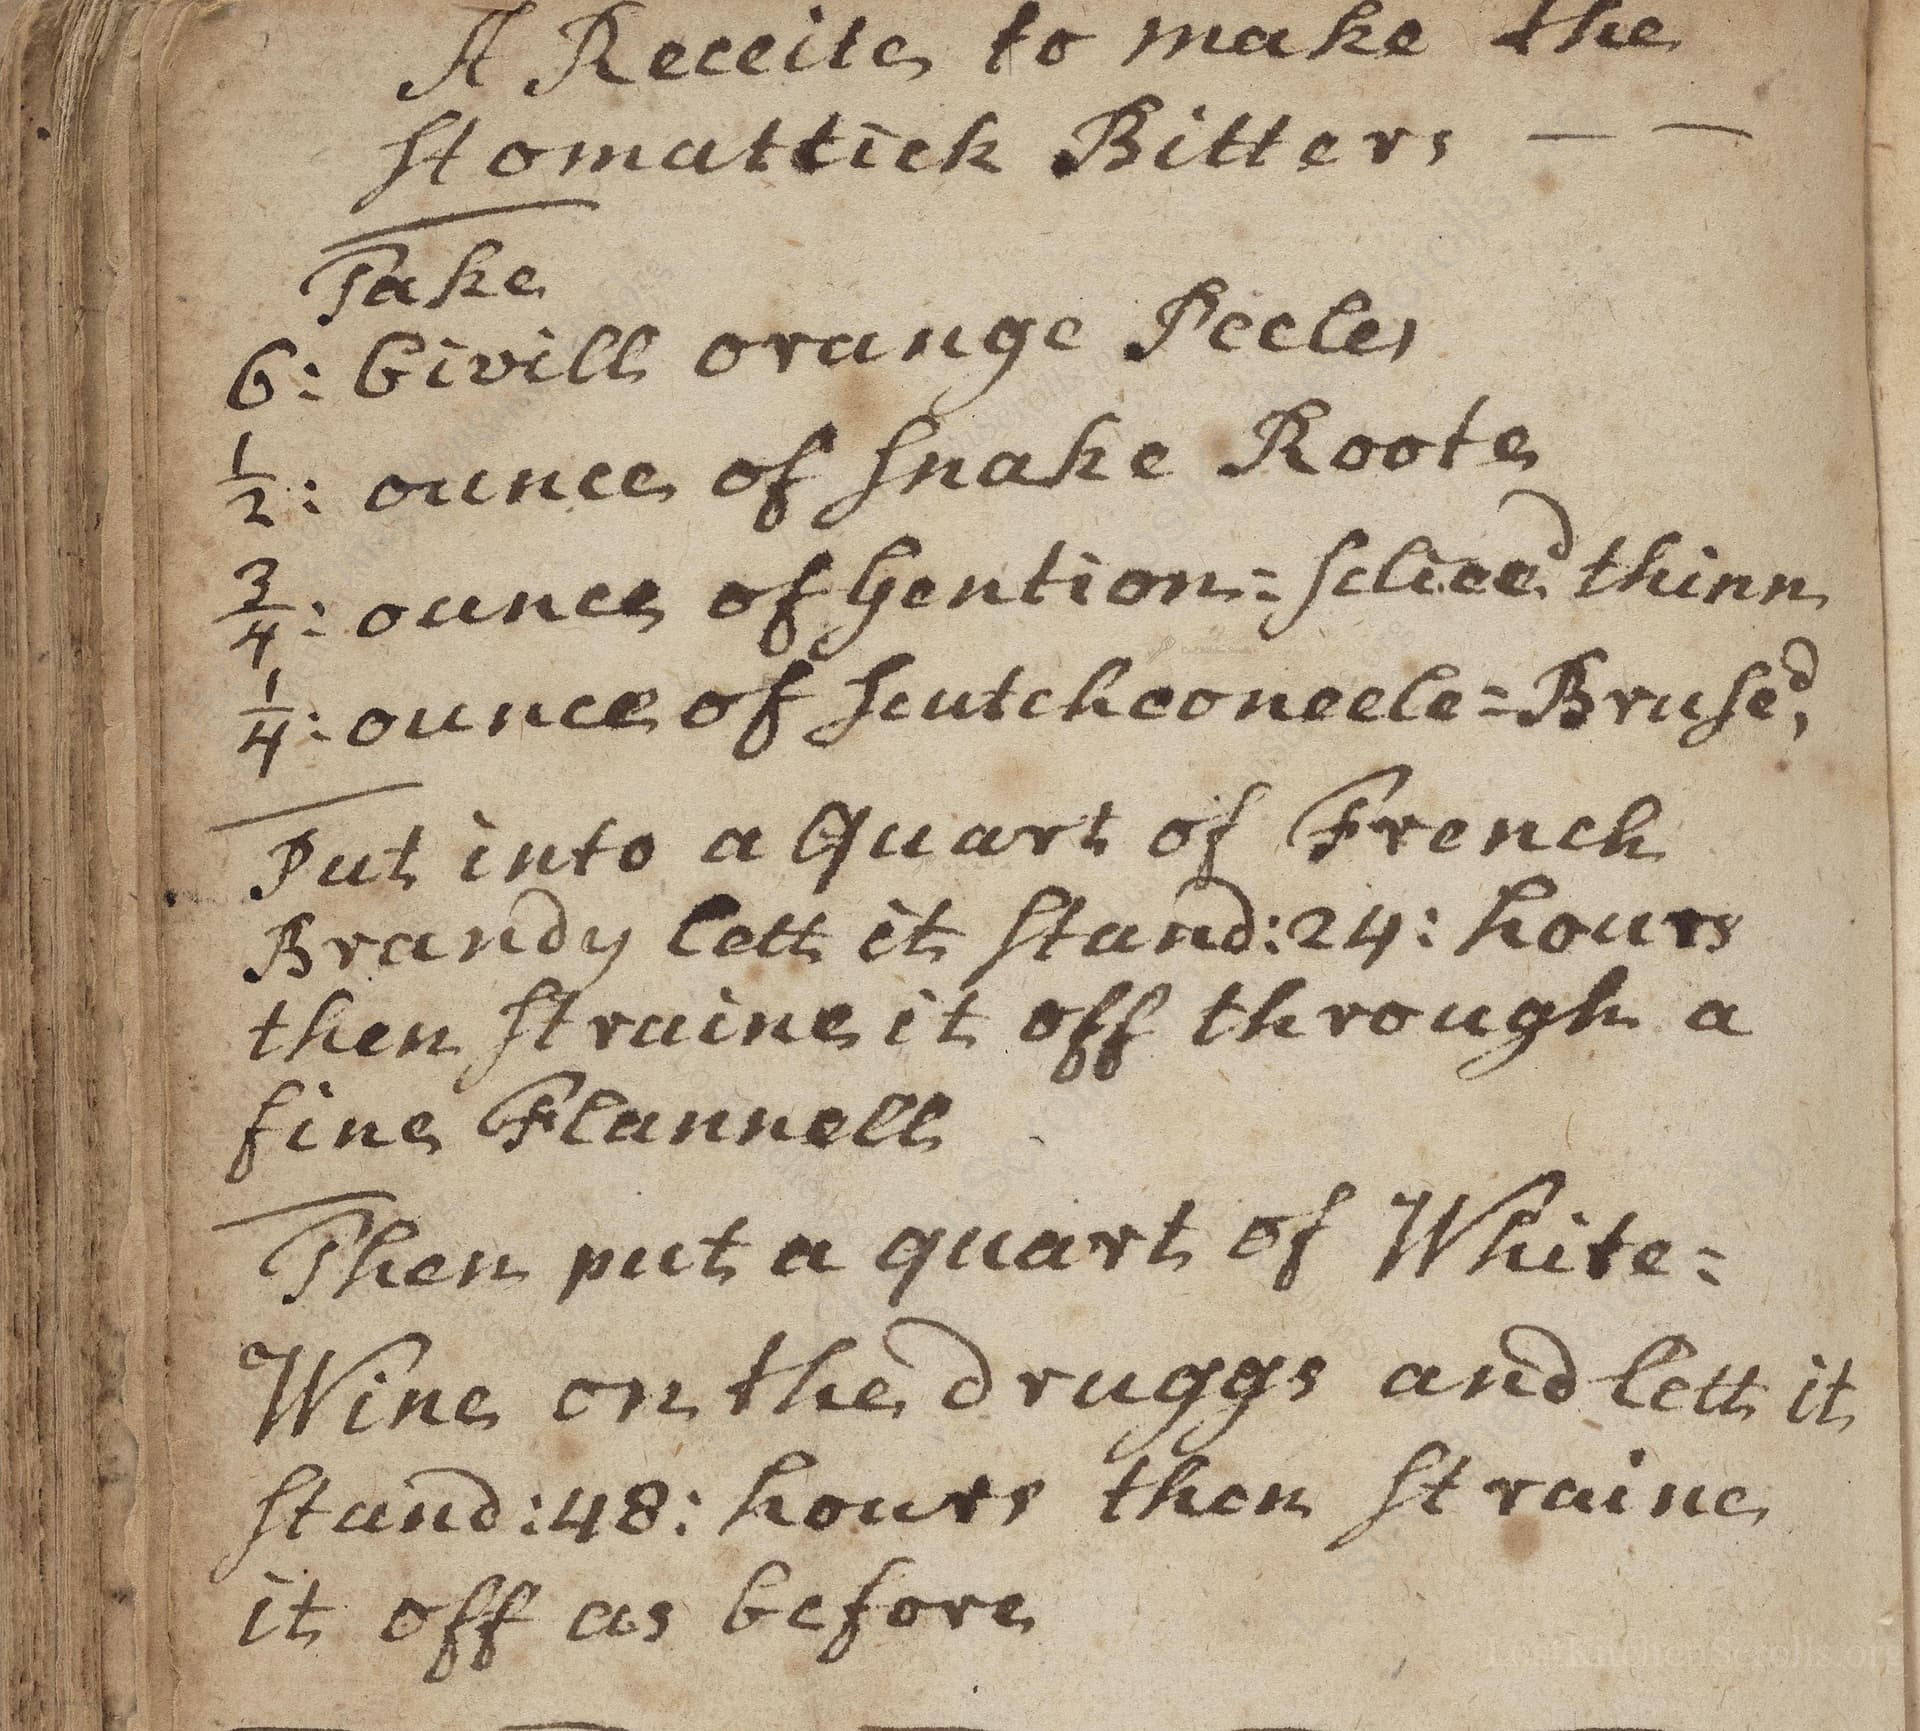 A Receite to make the
Stomattick Bitters — —
Take
6: Civill orange Peeles
1/2: ounce of Snake Roote
3/4: ounce of Gention = scliced thinn
1/4: ounce of Scutchconeele = Brused,
Put into a Quart of French
Brandy lett it stand :24: hours
then straine it off through a
fine Flannell
Then put a quart of White=
Wine on the druggs and lett it
stand :48: hours then straine
it off as before
LostKitchenScrolls.org